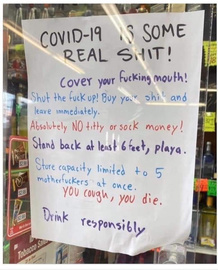 COVID-19 IS SOME
REAL SHIT!
Cover your fucking mouth!
Shut the fuck up! Buy your shit and
leave immediately.
Absolutely NO titty or sock money!
Stand back at least 6 feet, playa.
Store capacity limited to 5
motherfuckers at once.
You cough, you die.
Drink responsibly